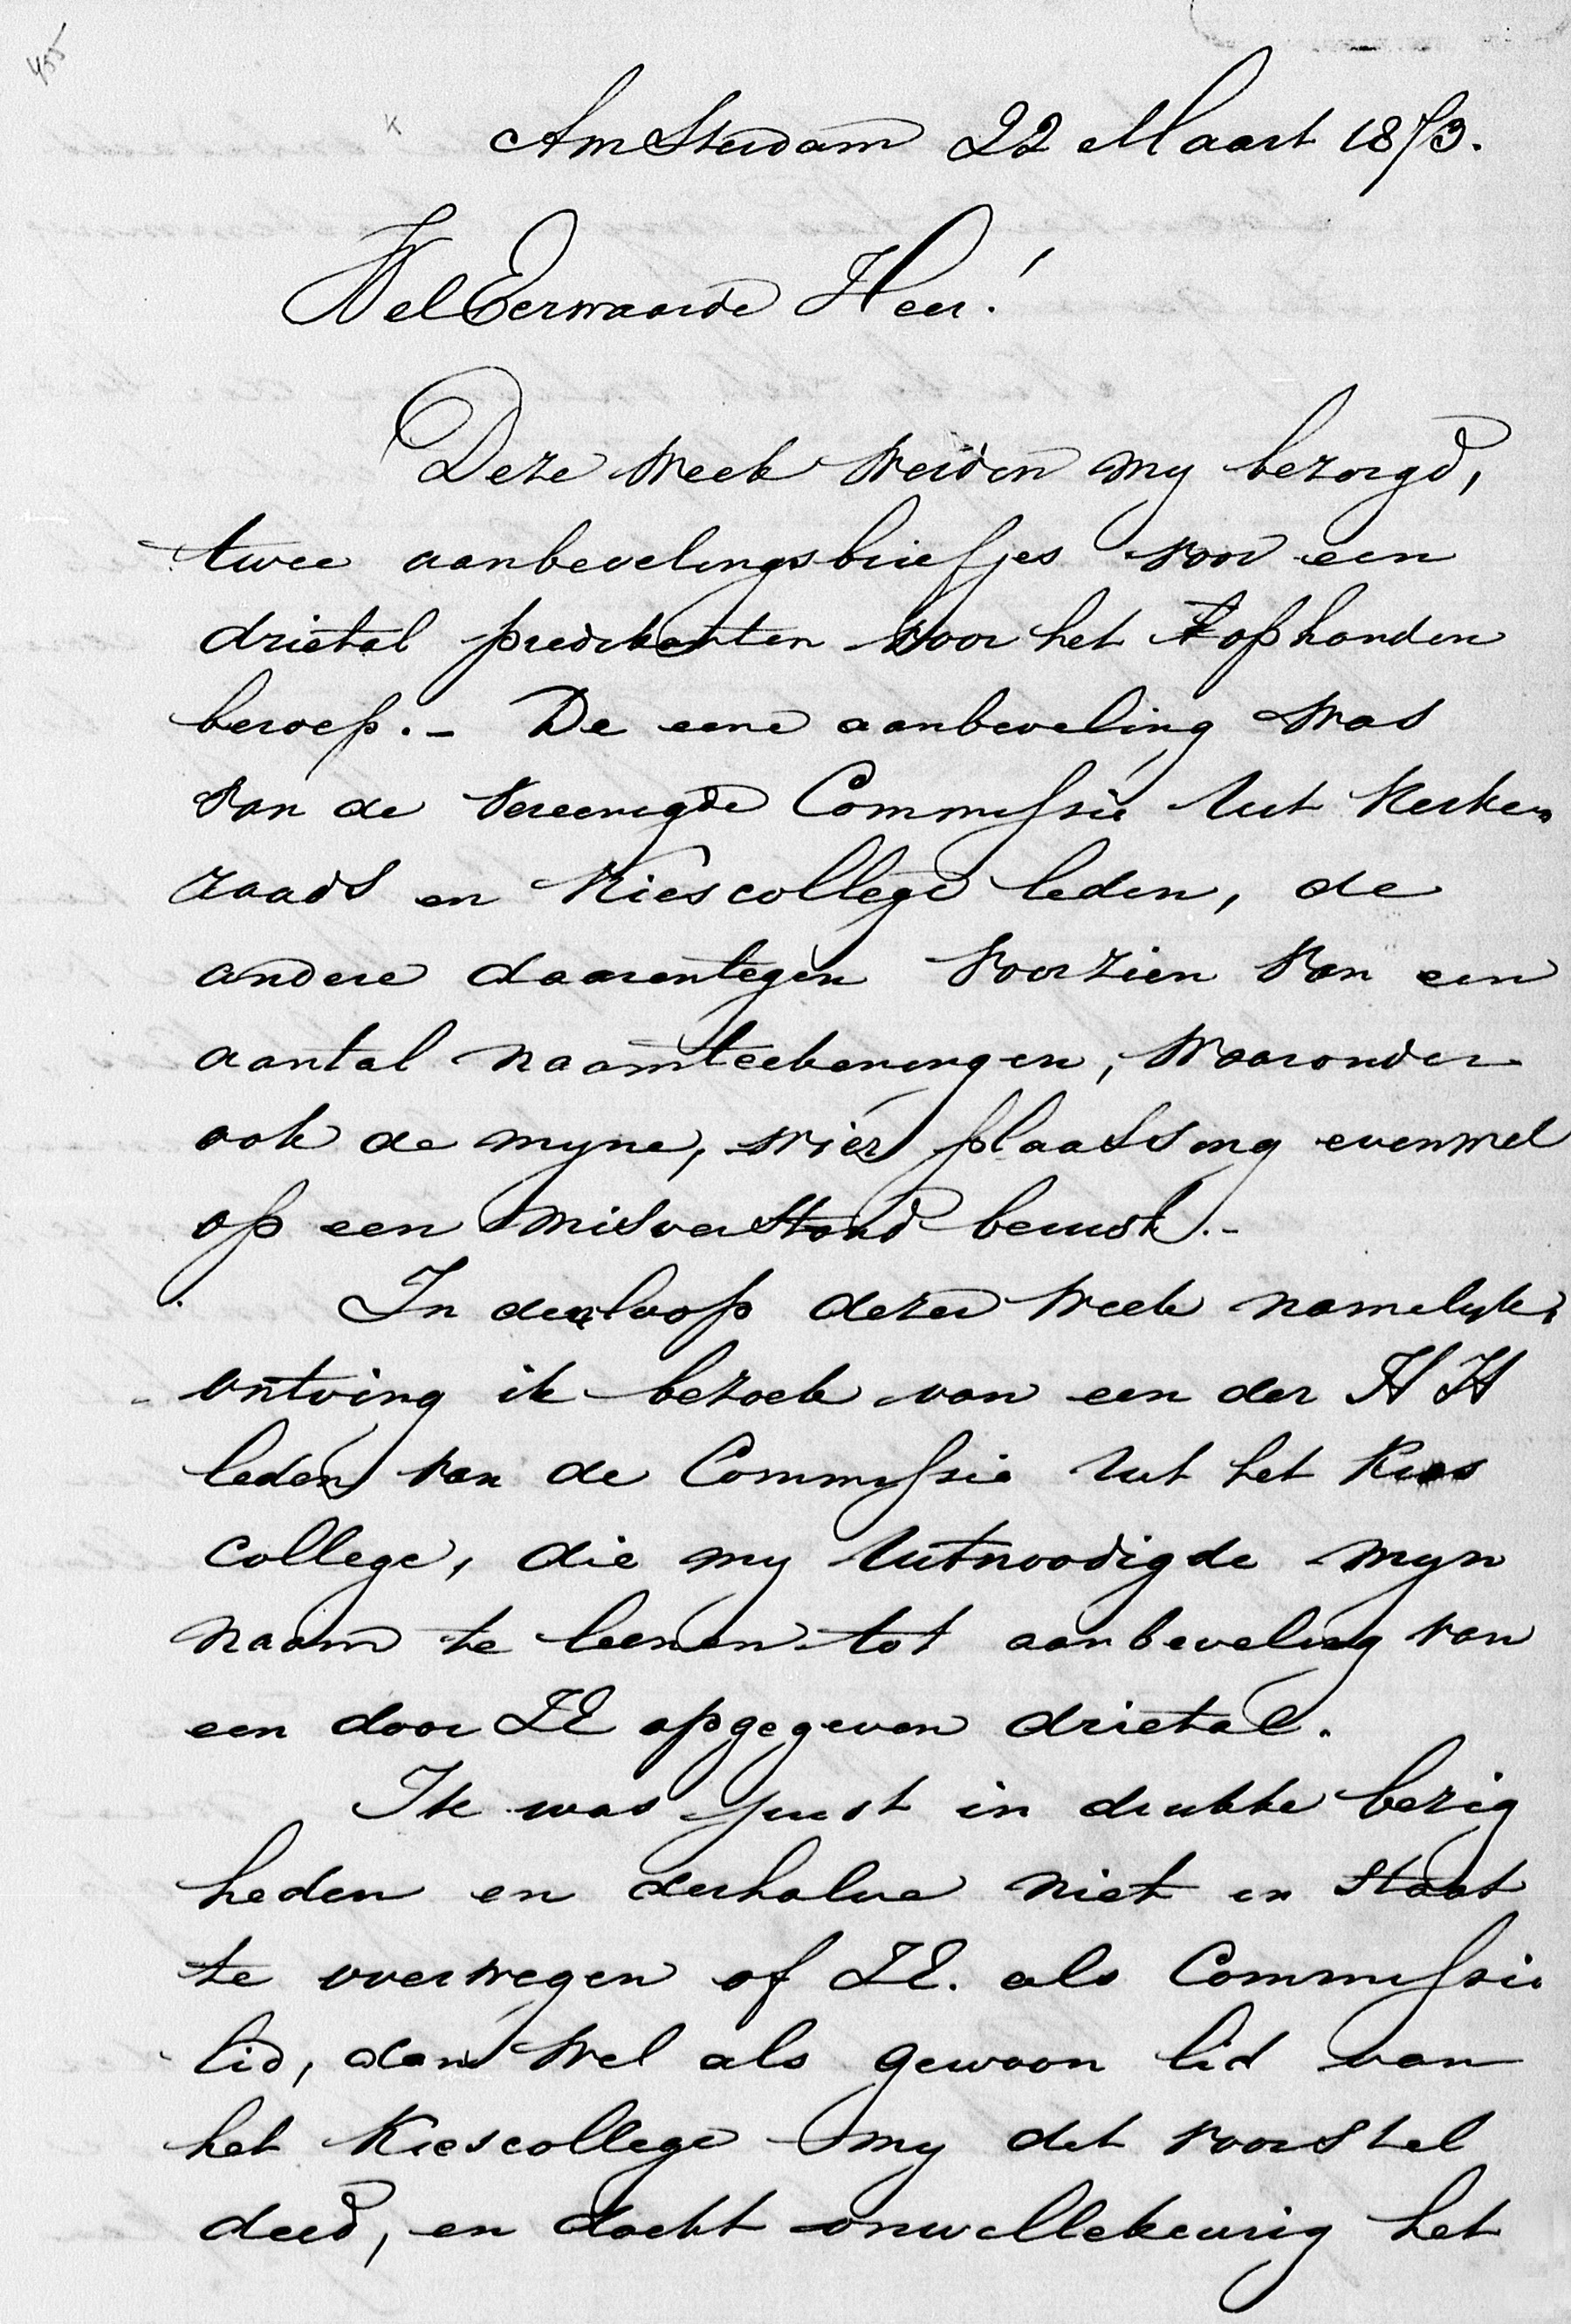 455
Amsterdam 22 Maart 1873.
WelEerwaarde Heer!
Deze week werden my bezorgd,
twee aanbevelingsbriefjes voor een
drietal predikanten voor het ophanden
beroep. - De eene aanbeveling was
van de vereenigde Commissie uit Kerken
raads en Kiescollege leden, de
andere daarentegen voorzien van een
aantal naamteekeningen, waaronder
ook de myne, wier plaatsing evenwel
op een misverstand berust. -
In den loop dezer week namelyk
ontving ik bezoek van een der HH
leden van de Commissie uit het Kies
college, die my uitnoodigde myn
naam te leenen tot aanbeveling van
een door ZE opgegeven drietal.
Ik was juist in drukke bezig
heden en derhalve niet in staat
te overwegen of ZE. als Commissie
lid, dan wel als gewoon lid van
het Kiescollege my dit voorstel
deed, en dacht onwillekeurig het